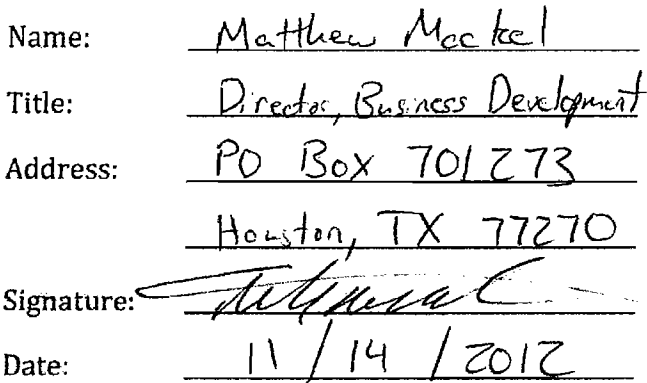 Name: Matthew Meckel
Title: Director, Business Development
Address: PO Box 701273
Houston, TX 77270
Signature:
Date: 11/14/2012